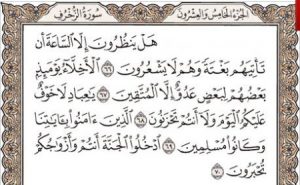 الجزء الخامس والعشرون سورة الزخرف
هَلْ يَنظُرُونَ إِلَّا ٱلسَّاعَةَ أَن
تَأْتِيَهُم بَغْتَةً وَهُمْ لَا يَشْعُرُونَ ٦٦ ٱلْأَخِلَّآءُ يَوْمَئِذٍۭ
بَعْضُهُمْ لِبَعْضٍ عَدُوٌّ إِلَّا ٱلْمُتَّقِينَ ٦٧ يَٰعِبَادِ لَا خَوْفٌ
عَلَيْكُمُ ٱلْيَوْمَ وَلَآ أَنتُمْ تَحْزَنُونَ ٦٨ ٱلَّذِينَ ءَامَنُوا۟ بِـَٔايَٰتِنَا
وَكَانُوا۟ مُسْلِمِينَ ٦٩ ٱدْخُلُوا۟ ٱلْجَنَّةَ أَنتُمْ وَأَزْوَٰجُكُمْ
تُحْبَرُونَ ٧٠